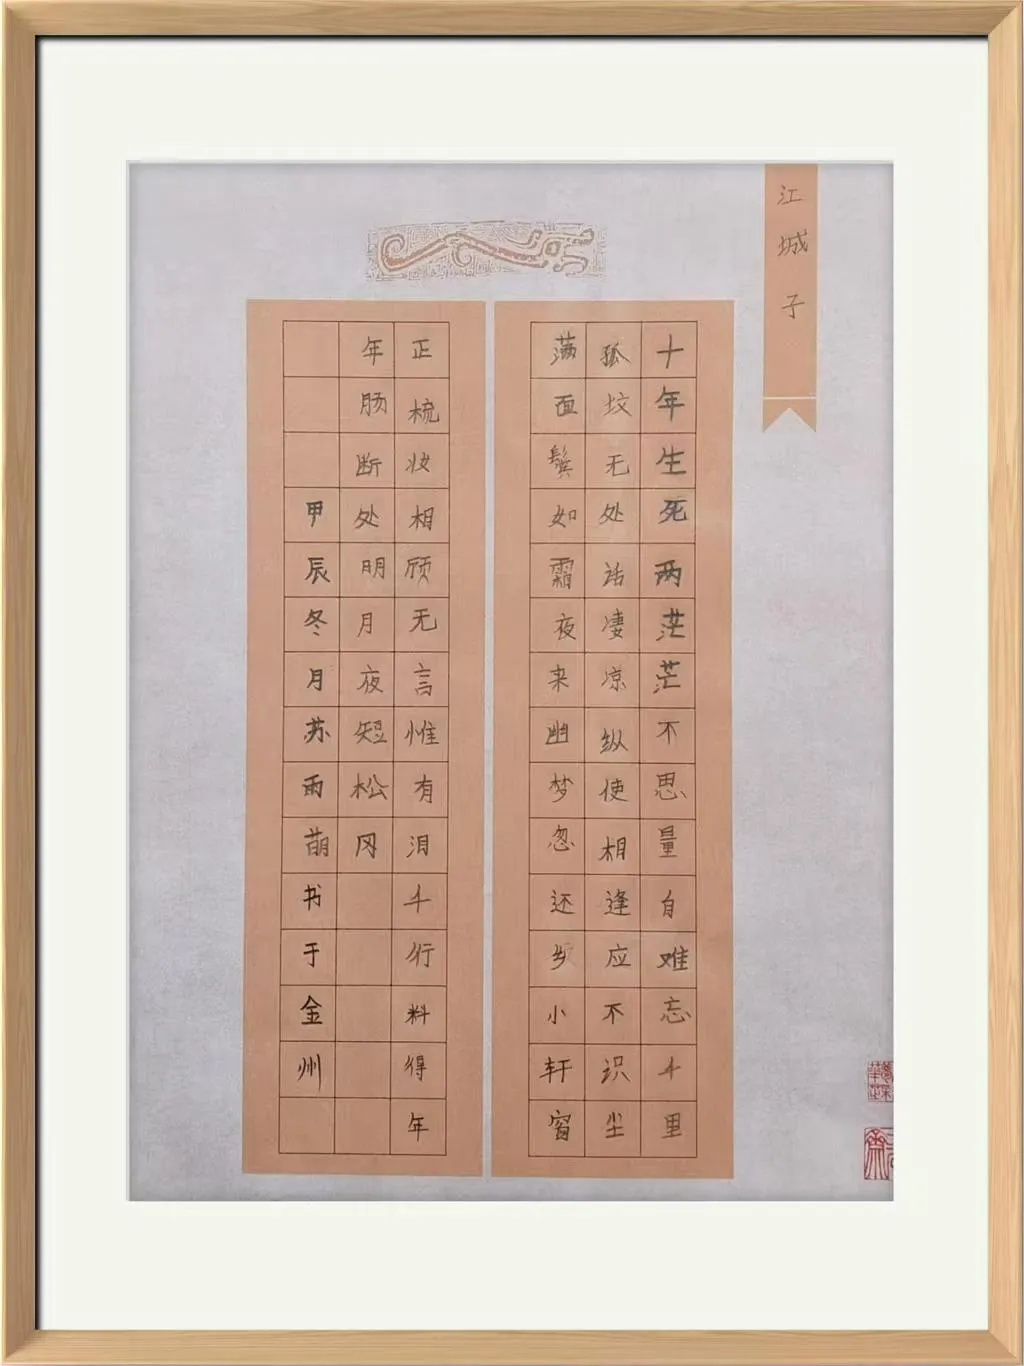 江城子
十年生死两茫茫不思量自难忘千里
孤坟无处话凄凉纵使相逢应不识尘
满面鬓如霜夜来幽梦忽还乡小轩窗
正梳妆相顾无言惟有泪千行料得年
年肠断处明月夜短松冈
甲辰冬月苏雨萌书于金州